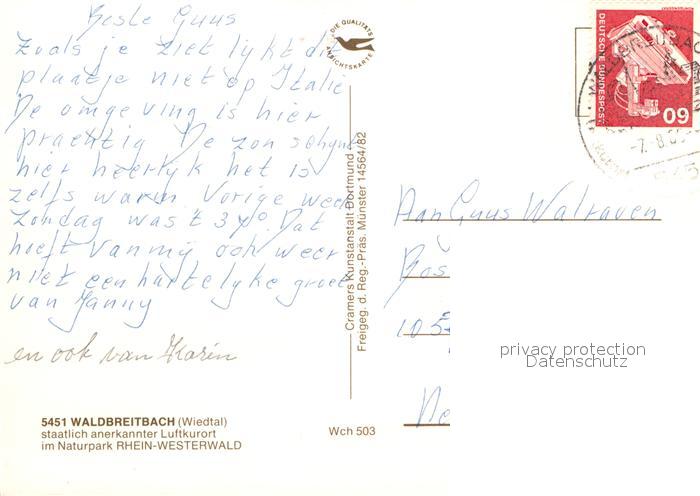 Beste Guus
Zoals je ziet lijkt dit
plaatje niet op Italie
De omgeving is hier
prachtig De zon schijnt
hier heerlijk het is
zelfs warm. Vorige week
Zondag was 't 37° Dat
hoeft van mij ook weer
niet een hartelijke groet
van Janny
en ook van Karin
5451 WALDBREITBACH (Wiedtal)
staatlich anerkannter Luftkurort
im Naturpark RHEIN-WESTERWALD
Wch 503
DIE QUALITÄTS
ANSICHTSKARTE
Cramers Kunstanstalt Dortmund
Freigeg. d. Reg.-Präs. Münster 14564/82
DEUTSCHE BUNDESPOST
60
-7.-8.
Aan Guus Walraven
Bos
105
Ne
privacy protection
Datenschutz